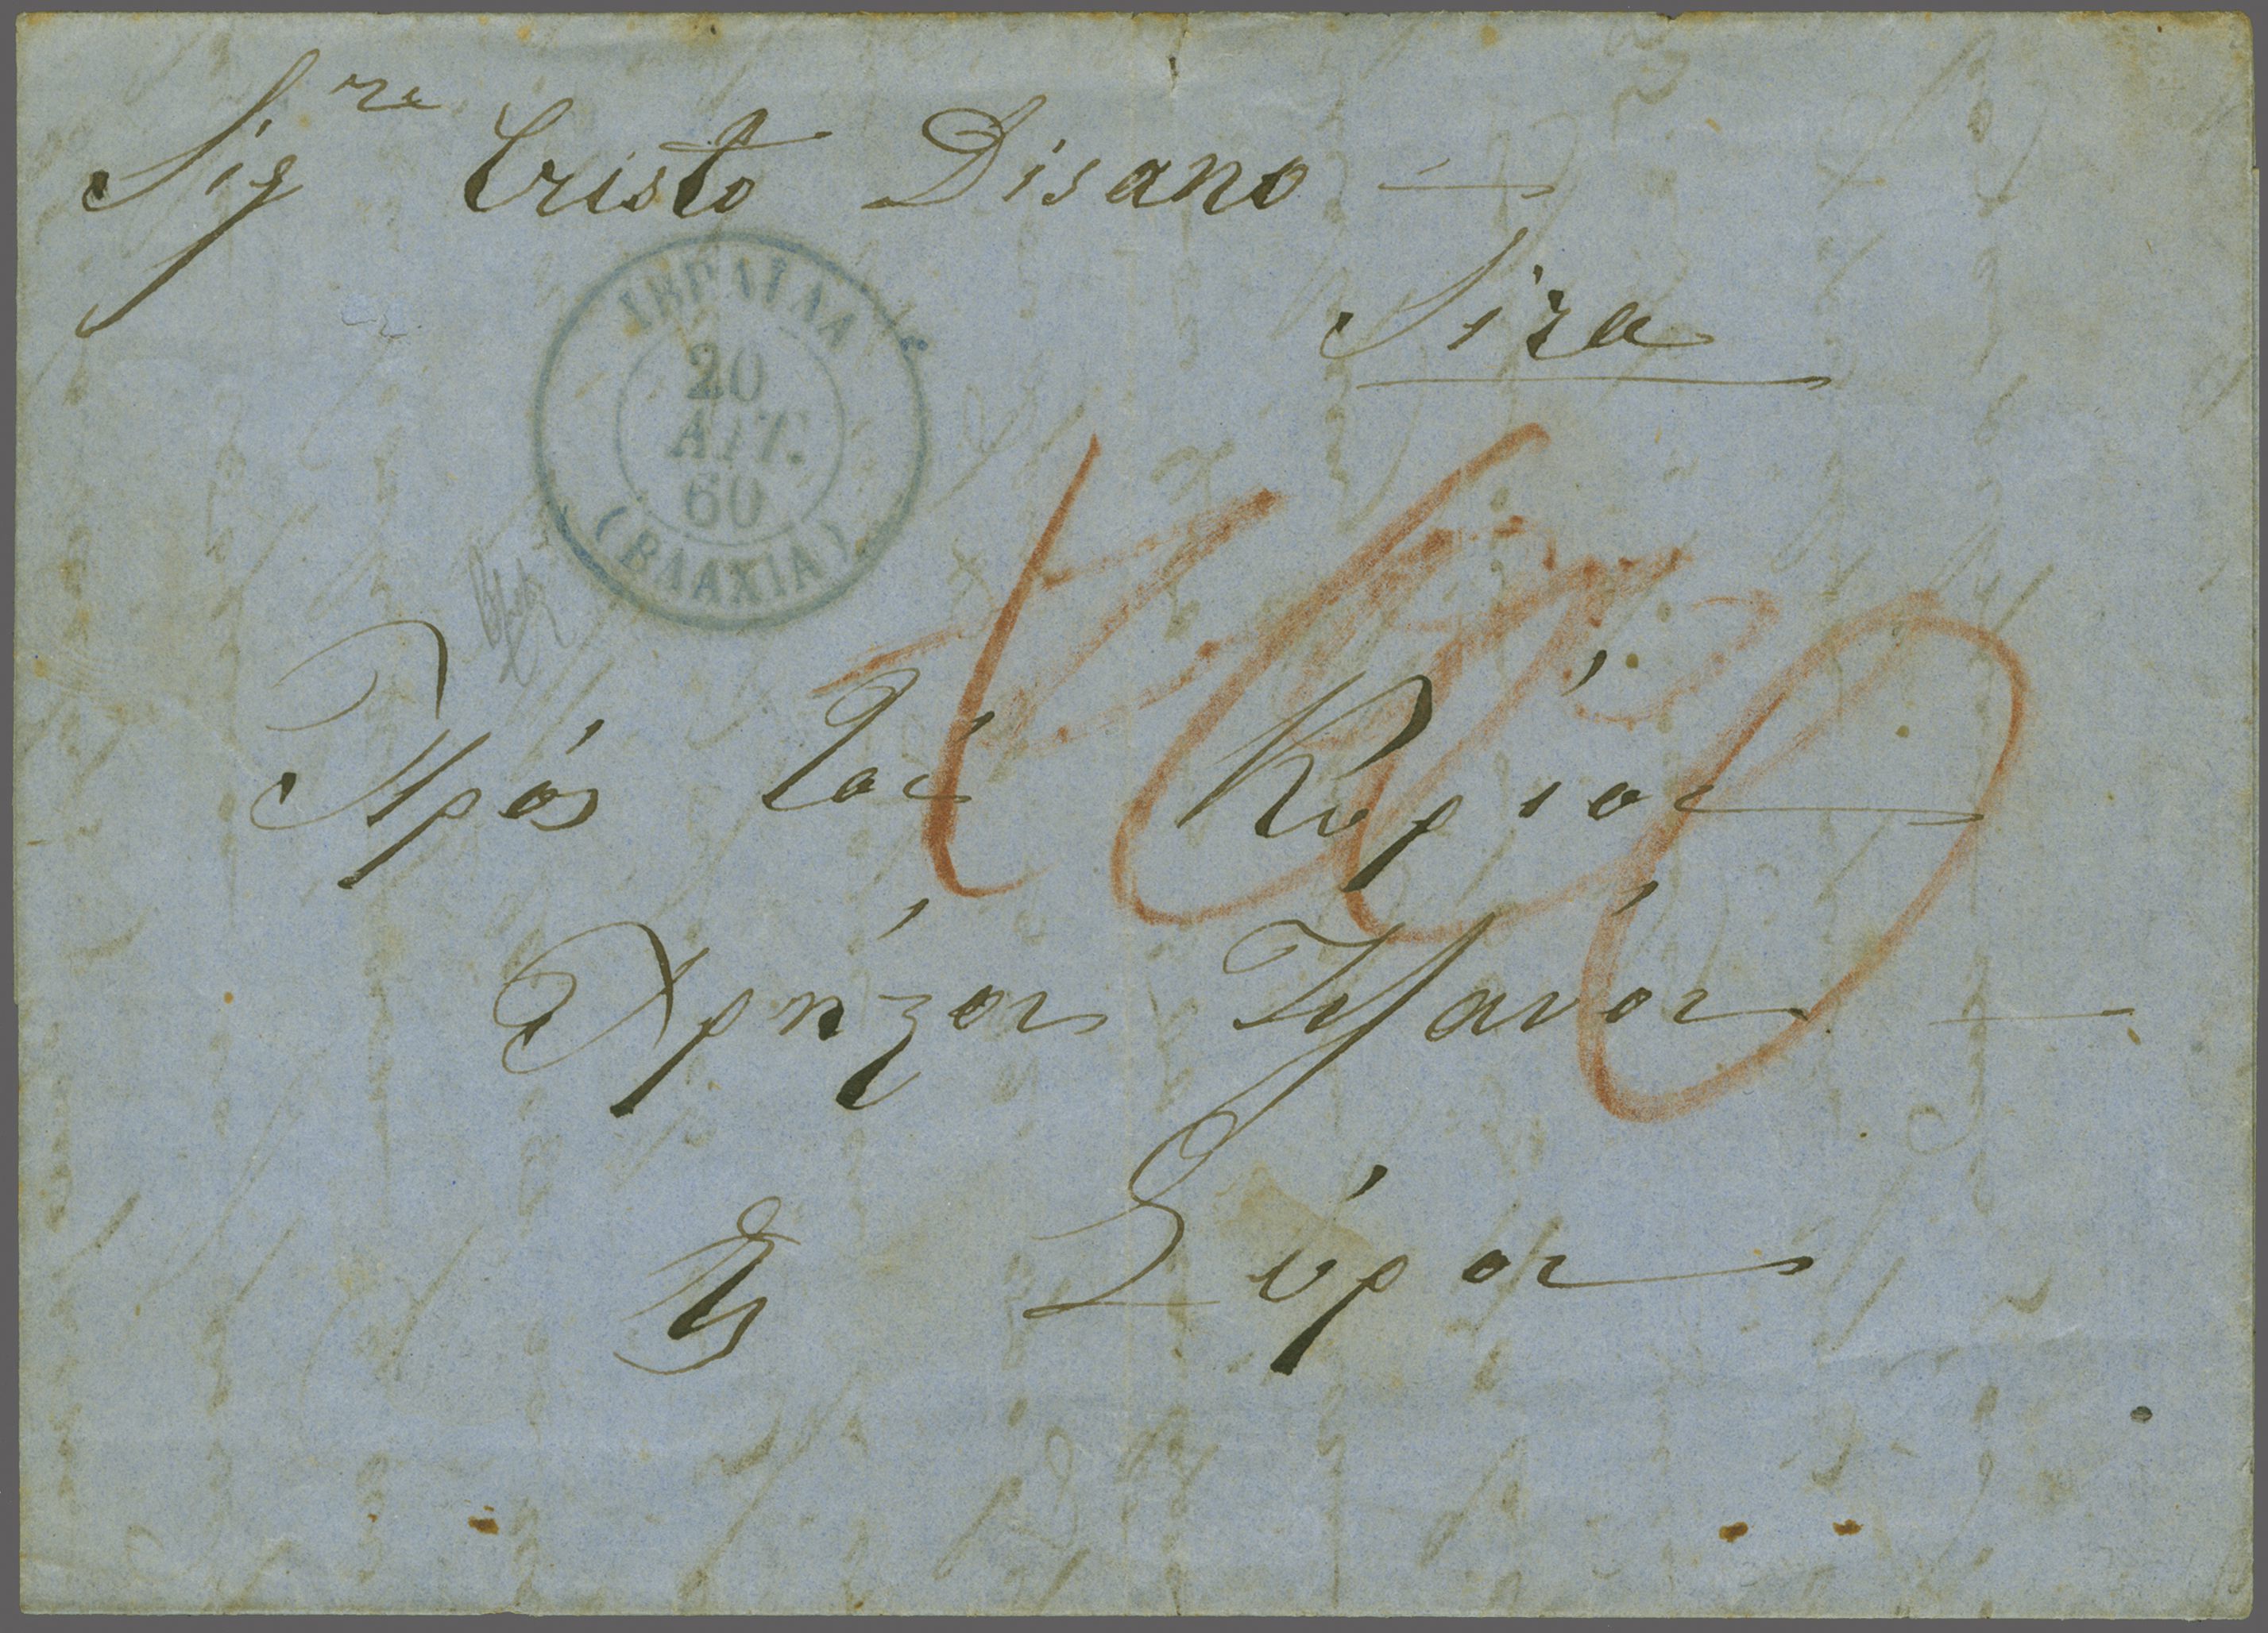 Sigre Cristo Disano
Sira
ΙΒΡΑΪΛΑ
20
ΑΥΓ.
60
(ΒΛΑΧΙΑ)
Πρός τον Κύριον
Χρήζον
Σύρον